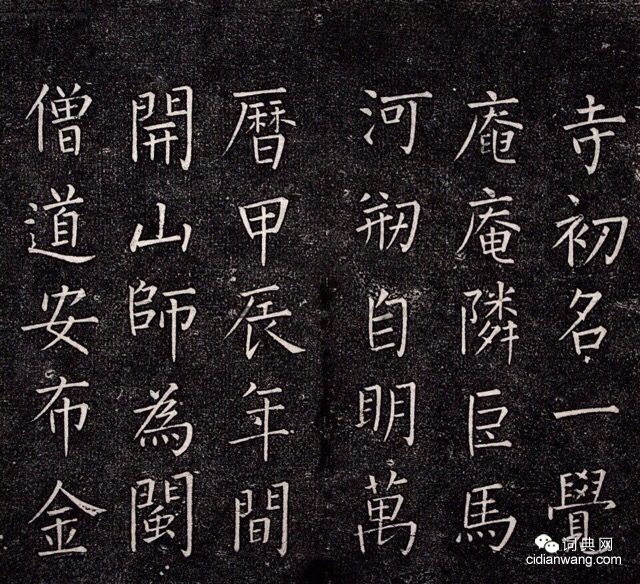 寺初名一覺
庵庵隣臣馬
河剏自明萬
暦甲辰年間
開山師為閩
僧道安布金
词典网
cidianwang.com